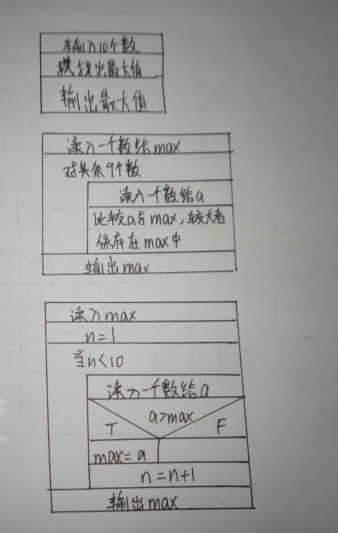 输入10个数
找出最大值
输出最大值
读入一个数给max
对其余9个数
读入一个数给a
比较a与max,较大者
保存在max中
输出max
读入max
n=1
当n<10
读入一个数给a
a>max
T
F
max=a
n=n+1
输出max